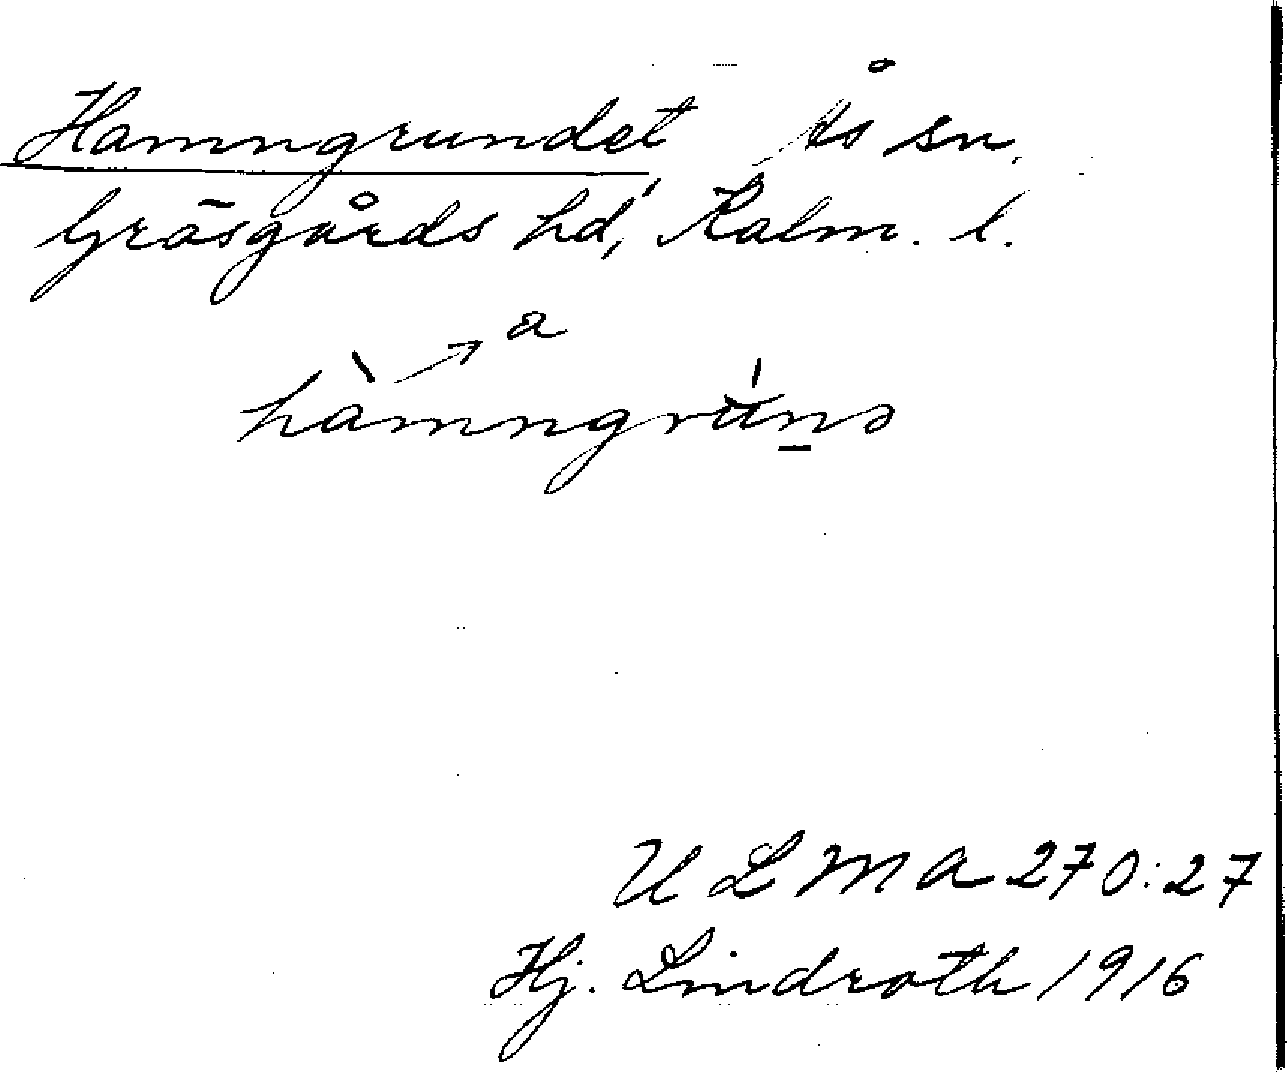 Hamngrundet Ås sn.
Gräsgårds hd, Kalm. l.
a
hàmngru̍n̲ə
ULMA 270:27
Hj. Lindroth 1916